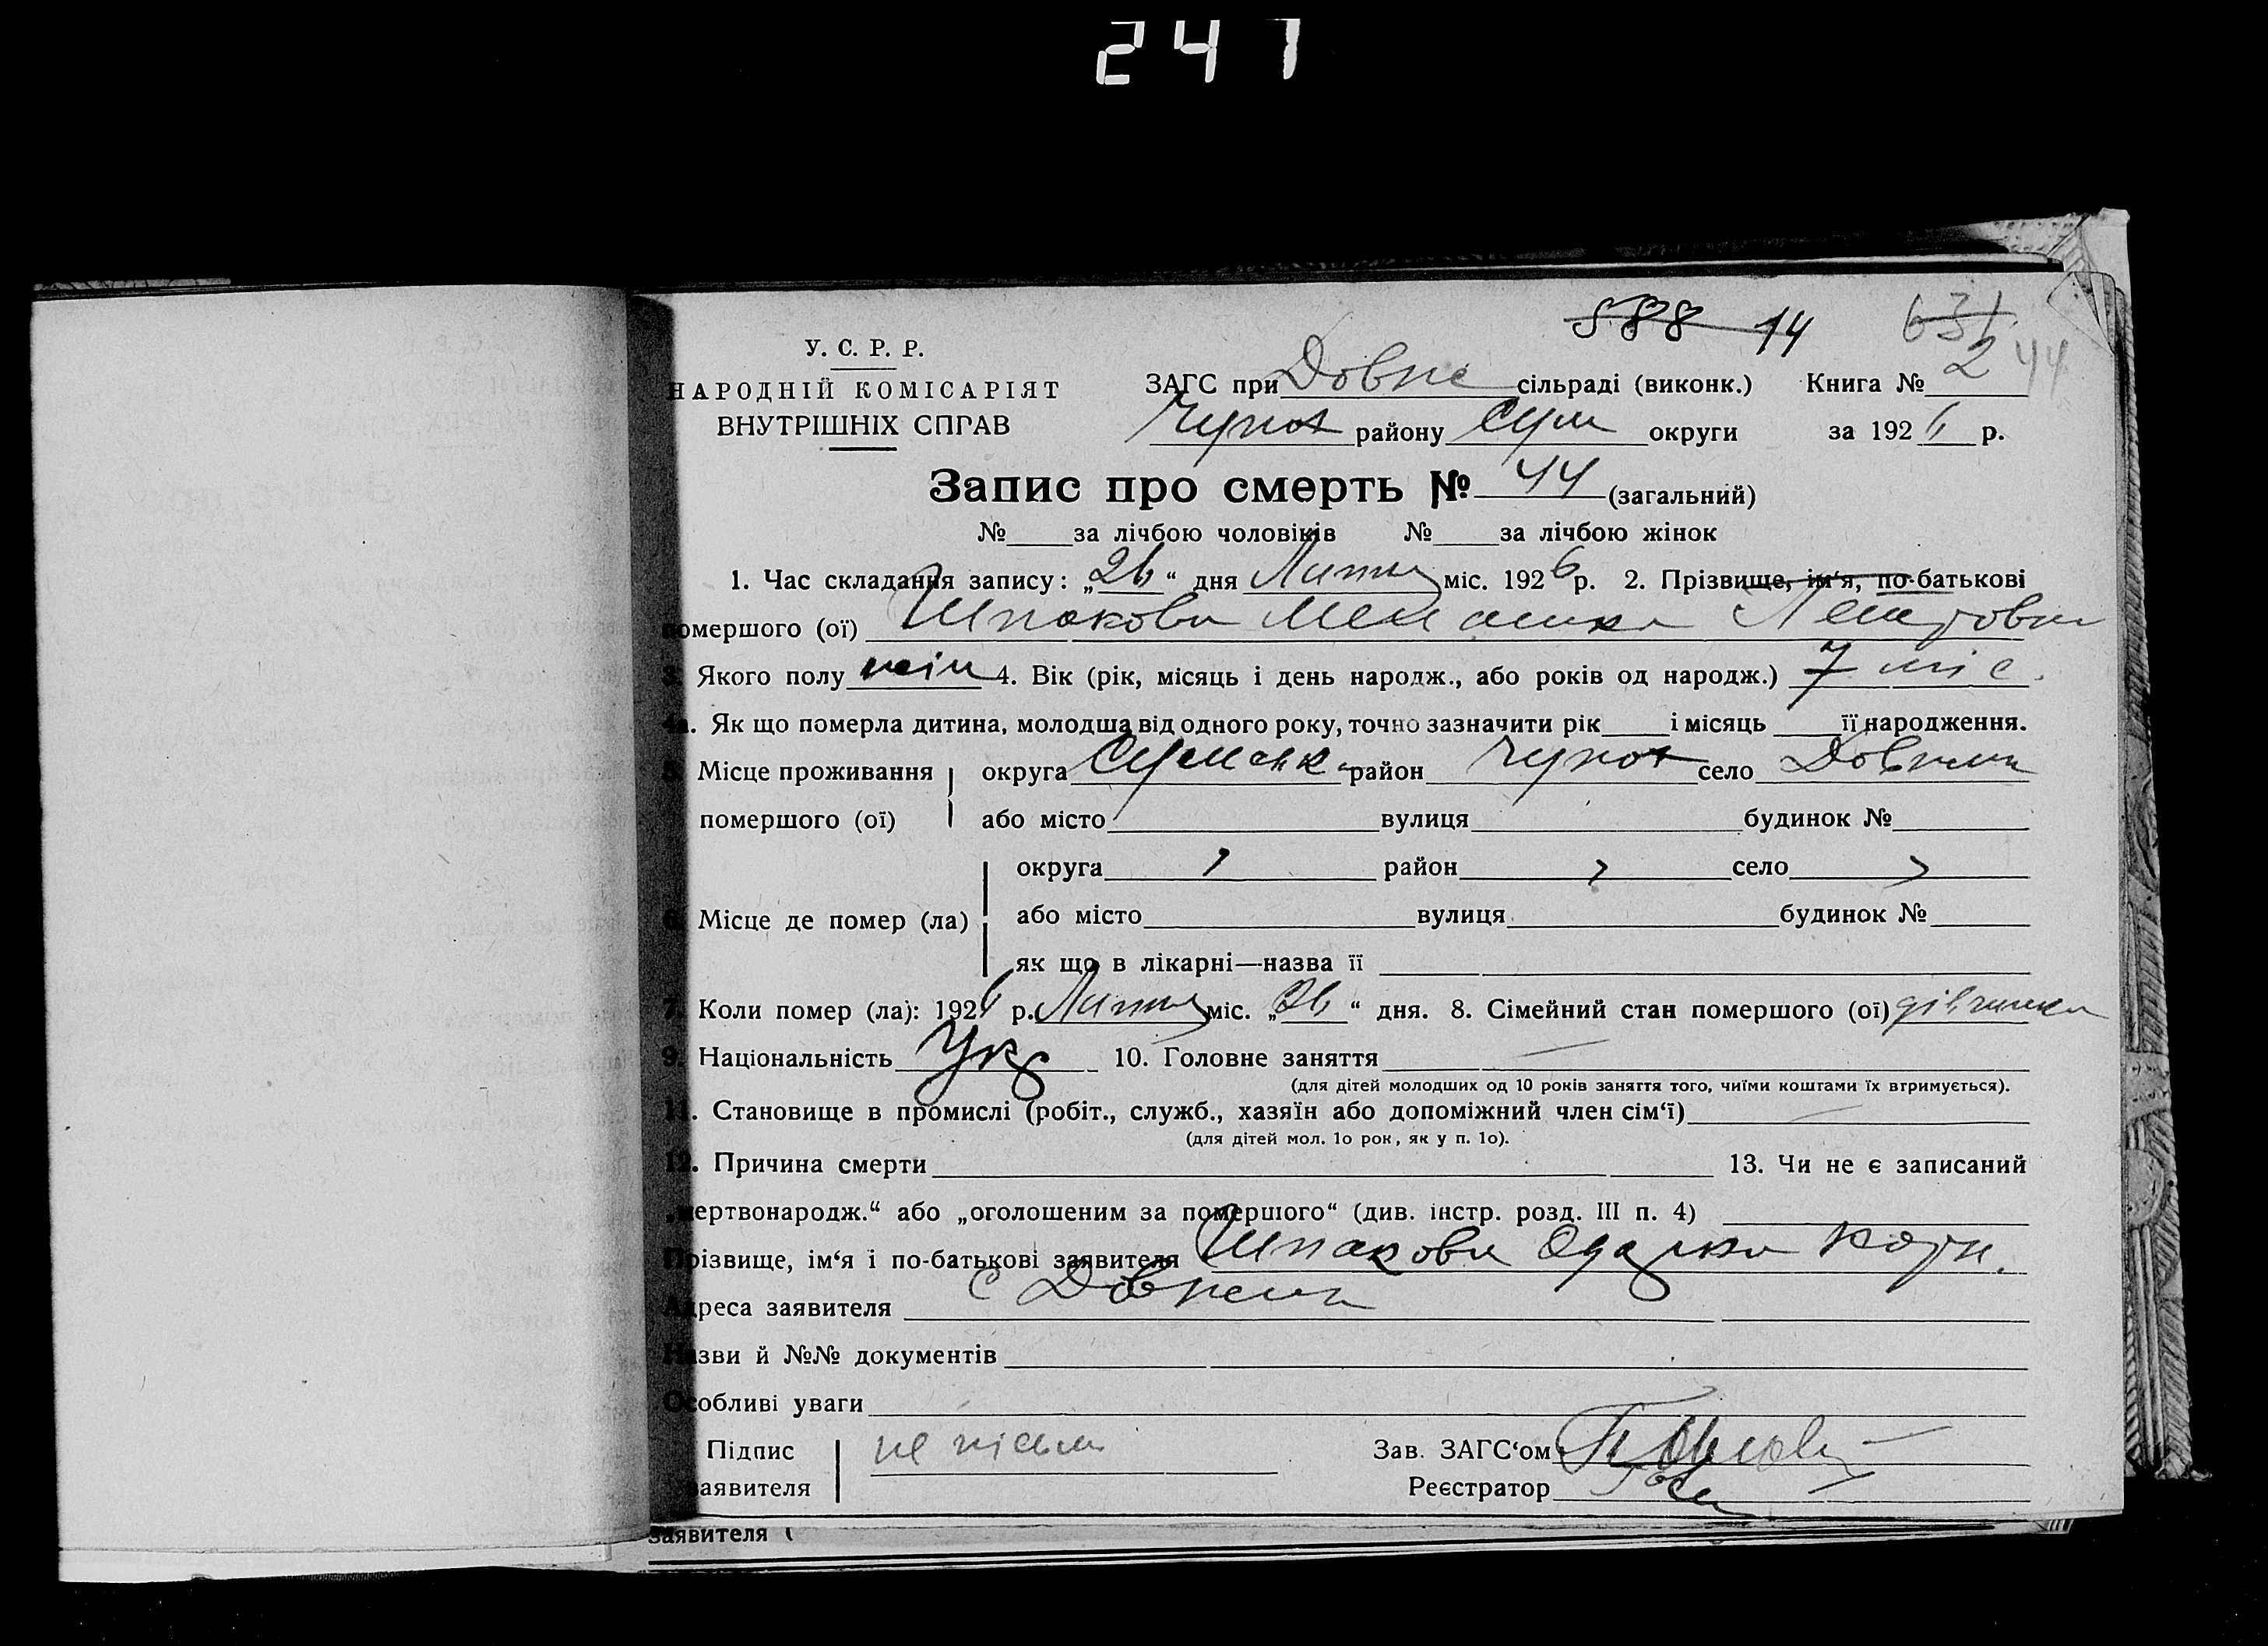 247
588 14 631
2 44
У. С. Р. Р.
НАРОДНІЙ КОМІСАРІЯТ
ВНУТРІШНІХ СПРАВ
ЗАГС при Довж сільраді (виконк.) Книга №
району Сум округи за 1926 р.
Запис про смерть № 44 (загальний)
№ за лічбою чоловіків № за лічбою жінок
1. Час складання запису: „26“ дня Лютня міс. 1926 р. 2. Прізвище, ім‘я, по-батькові
помершого (ої) Шпакова Петровна
3. Якого полу жін 4. Вік (рік, місяць і день народж., або років од народж.) 7 міс.
4а. Як що померла дитина, молодша від одного року, точно зазначити рік і місяць її народження.
5. Місце проживання округа Сумськ. район село
помершого (ої) або місто вулиця будинок №
округа район село
6. Місце де помер (ла) або місто вулиця будинок №
як що в лікарні—назва її
7. Коли помер (ла): 1926 р. Лютня міс. „26“ дня. 8. Сімейний стан помершого (ої) дівчинка
9. Національність Укр 10. Головне заняття —
(для дітей молодших од 10 років заняття того, чиїми коштами їх втримується).
11. Становище в промислі (робіт., служб., хазяїн або допоміжний член сім‘ї) —
(для дітей мол. 1о рок, як у п. 1о).
12. Причина смерти 13. Чи не є записаний
„мертвонародж.“ або „оголошеним за помершого“ (див. інстр. розд. III п. 4)
Прізвище, ім‘я і по-батькові заявителя Шпакова Одарка
Адреса заявителя с
Назви й №№ документів
Особливі уваги
Підпис не пісьм Зав. ЗАГС‘ом
заявителя Реєстратор
заявителя (